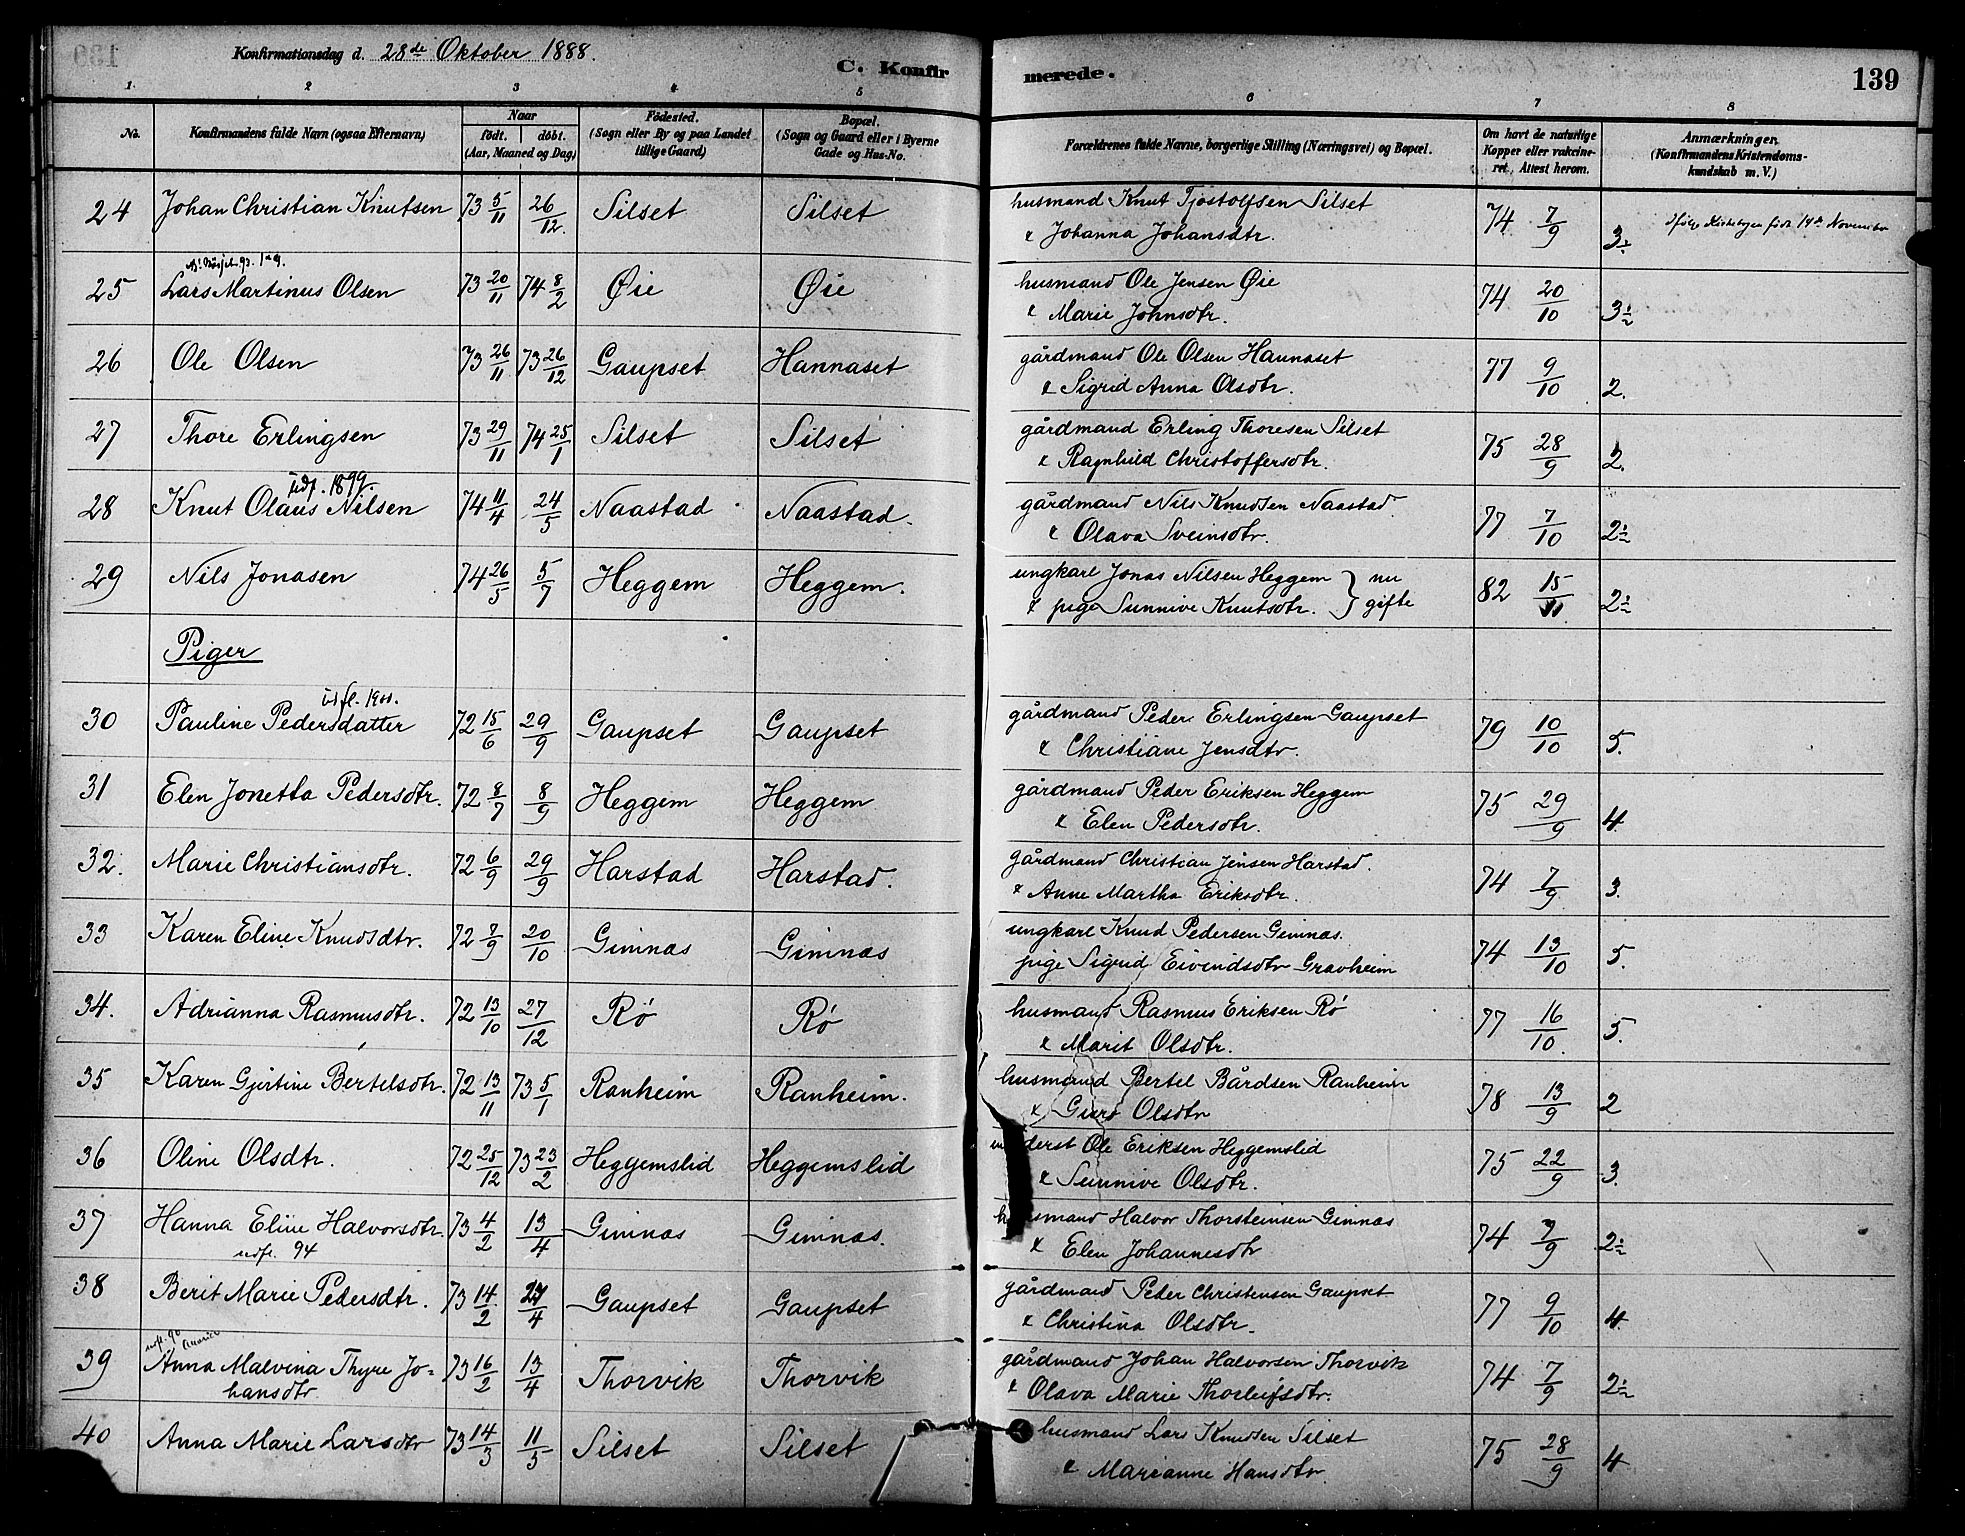 Konfirmationsdag d. 28de Oktober 1888.
C. Konfirmerede.
139
1. 2 3 4 5 6 7 8
No.
Konfirmandens fulde Navn (ogsaa Efternavn)
Naar
født. døbt.
(Aar, Maaned og Dag)
Fødested.
(Sogn eller By og paa Landet
tillige Gaard)
Bopæl.
(Sogn og Gaard eller i Byerne
Gade og Hus-No.
Forældrenes fulde Navne, borgerlige Stilling (Næringsvei) og Bopæl.
Om havt de naturlige
Kopper eller vakcine-
ret, Attest herom.
Anmærkninger.
(Konfirmandens Kristendoms-
kundskab m. V.)
24 Johan Christian Knutsen 73 5/11 26/12 Silset Silset husmand Knut Tjøstolfsen Silset 74 7/9 3½ ifølge Kirkebogen født 14de November
& Johanna Johansdtr.
25 Lars Martinus Olsen 73 20/11 74 8/2 Øie Øie husmand Ole Jensen Øie 74 20/10 3½
& Marie Johnsdtr.
26 Ole Olsen 73 26/11 73 26/12 Gaupset Hannaset gårdmand Ole Olsen Hannaset 77 9/10 2.
& Sigrid Anna Olsdtr.
27 Thore Erlingsen 73 29/11 74 25/1 Silset Silset gårdmand Erling Thoresen Silset 75 28/9 2.
& Ragnhild Christoffersdtr.
udf. 1899.
28 Knut Olaus Nilsen 74 11/4 24/5 Naastad Naastad. gårdmand Nils Knudsen Naastad. 77 7/10 2½
& Olava Sveinsdtr.
29 Nils Jonasen 74 26/5 5/7 Heggem Heggem. ungkarl Jonas Nilsen Heggem } nu 82 15/11 2½
& pige Sunnive Knutsdtr. } gifte
Piger
udfl. 1900.
30 Pauline Pedersdatter 72 15/6 29/9 Gaupset Gaupset gårdmand Peder Erlingsen Gaupset 79 10/10 5.
& Christiane Jensdtr.
31 Elen Jonetta Pedersdtr. 72 8/7 8/9 Heggem Heggem gårdmand Peder Eriksen Heggem 75 29/9 4.
& Elen Pedersdtr.
32. Marie Christiansdtr. 72 6/9 29/9 Harstad Harstad. gårdmand Christian Jensen Harstad. 74 7/9 3.
& Anne Martha Eriksdtr.
33 Karen Eline Knudsdtr. 72 7/9 20/10 Gimnæs Gimnæs ungkarl Knud Pedersen Gimnæs. 74 13/10 5.
pige Sigrid Eivindsdtr Gravheim
34. Adrianna Rasmusdtr. 72 13/10 27/12 Rø Rø husmand Rasmus Eriksen Rø 77 16/10. 5.
& Marit Olsdtr.
35 Karen Gjertine Bertelsdtr. 72 13/11 73 5/1 Ranheim Ranheim. husmand Bertel Bårdsen Ranheim 78 13/9 2
& Guro Olsdtr
36 Oline Olsdtr. 72 25/12 73 23/2 Heggemslid Heggemslid inderst Ole Eriksen Heggemslid 75 22/9 3.
& Sunnive Olsdtr.
37 Hanna Eline Halvorsdtr. 73 4/2 13/4 Gimnæs Gimnæs. husmand Halvor Thorsteinsen Gimnæs 74 7/9 2½
udfl. 94 & Elen Johannesdtr
38 Berit Marie Pedersdtr. 73 14/2 27/4 Gaupset Gaupset gårdmand Peder Christensen Gaupset 77 9/10 4.
& Christina Olsdtr.
udfl. 90 America
39 Anna Malvina Thyre Jo- 73 16/2 13/4 Thorvik Thorvik gårdmand Johan Halvorsen Thorvik 74 7/9 2½
hansdtr. & Olava Marie Thorleifsdtr.
40 Anna Marie Larsdtr 73 14/3 11/5 Silset Silset husmand Lars Knudsen Silset 75 28/9 4
& Marianne Hansdtr.